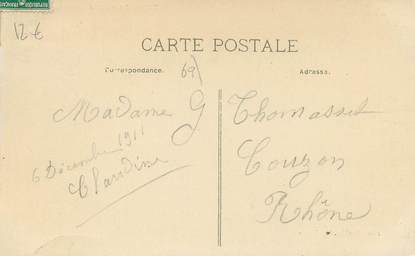 RÉPUBLIQUE FRANÇAISE
12 €
CARTE POSTALE
Correspondance.
69)
Adresse.
Madame G Thomasset
6 Décembre 1911
Claudine
Couzon
Rhône